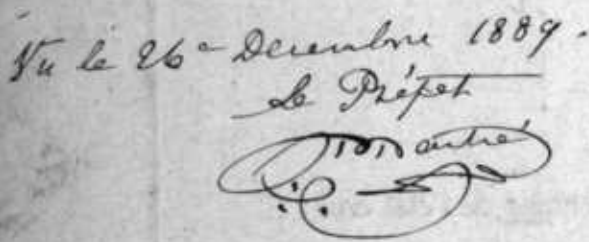 Vu le 26e Decembre 1889.
Le Préfet